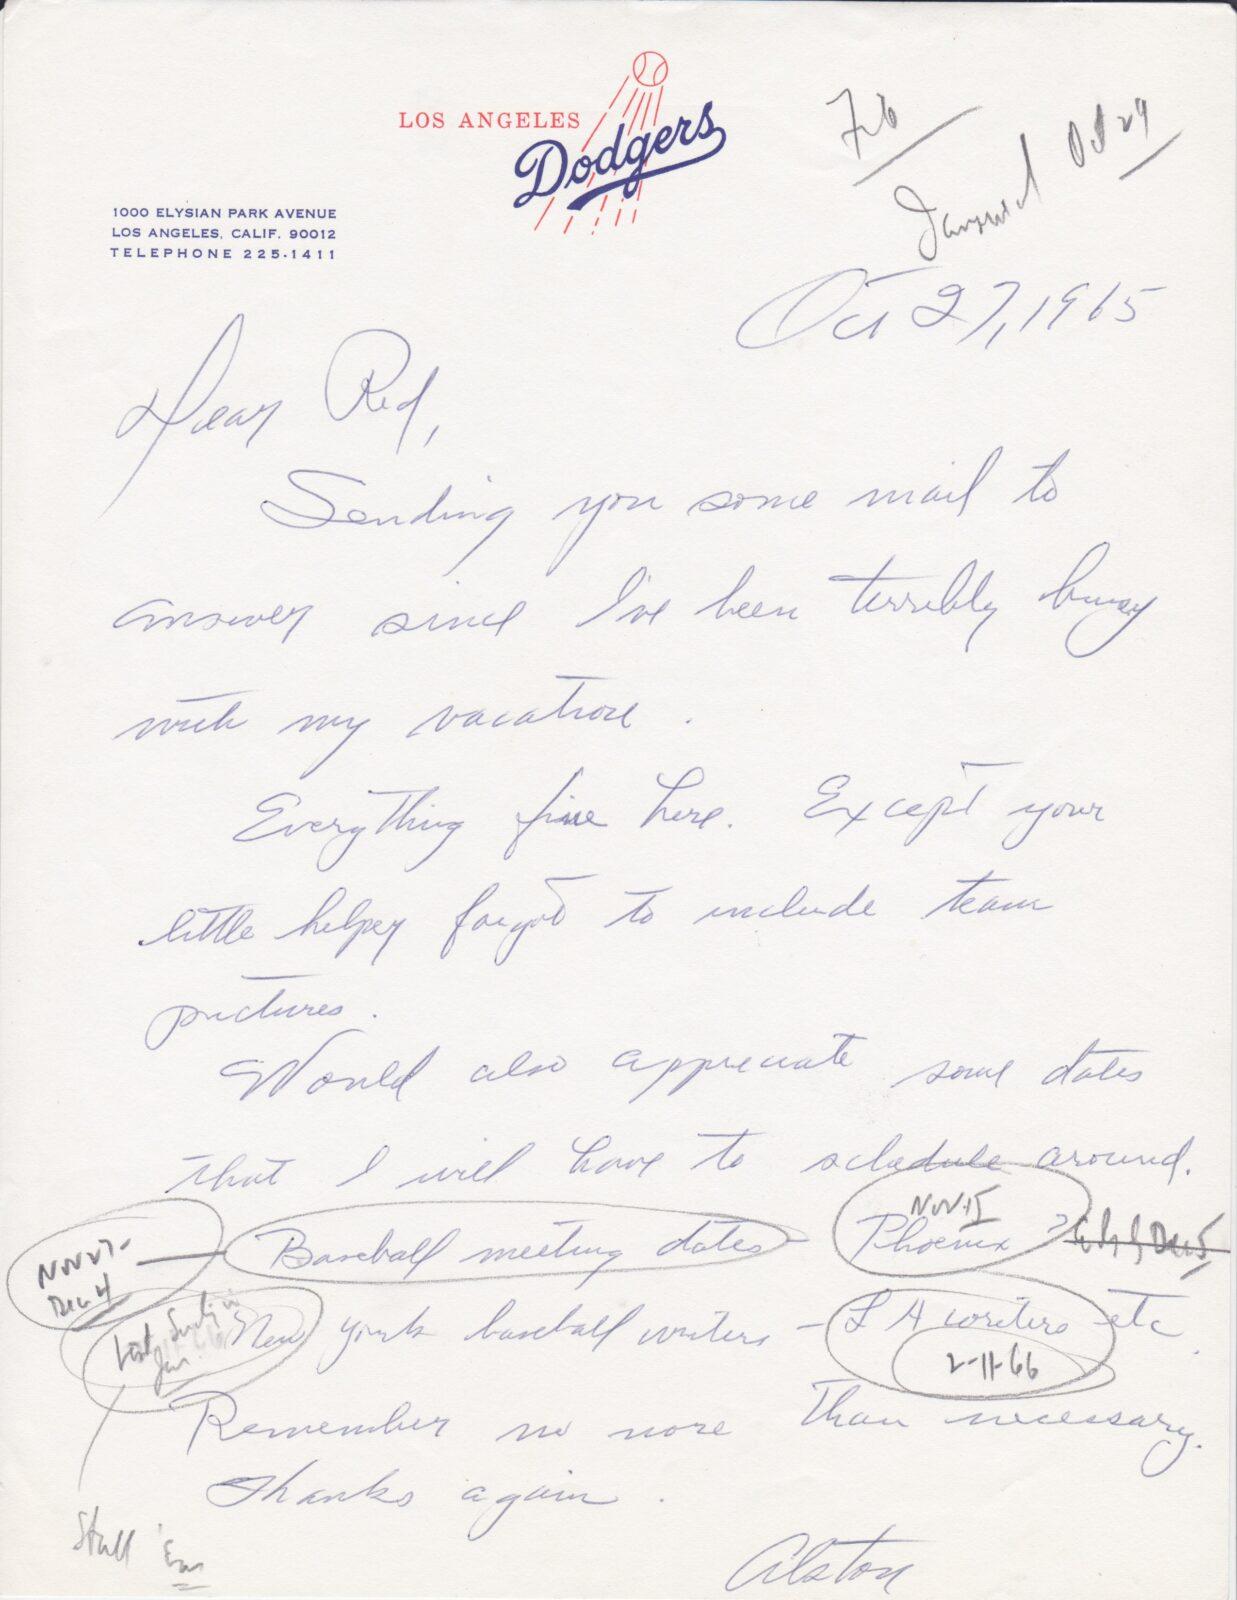 LOS ANGELES
Dodgers
Feb
Oct 29
1000 ELYSIAN PARK AVENUE
LOS ANGELES, CALIF. 90012
TELEPHONE 225-1411
Oct 27, 1965
Dear Red,
Sending you some mail to
answer since I've been terribly busy
with my vacation.
Everything fine here. Except your
little helper forgot to include team
pictures.
Would also appreciate some dates
that I will have to schedule around.
NOV 27-
Dec 4
Baseball meeting dates - Phoenix ?
NOV 15
Dec 5
Last Sunday in
Jan.
New York baseball writers - LA writers etc.
2-11-66
Remember no more than necessary.
Thanks again.
Stall 'Em
Alston